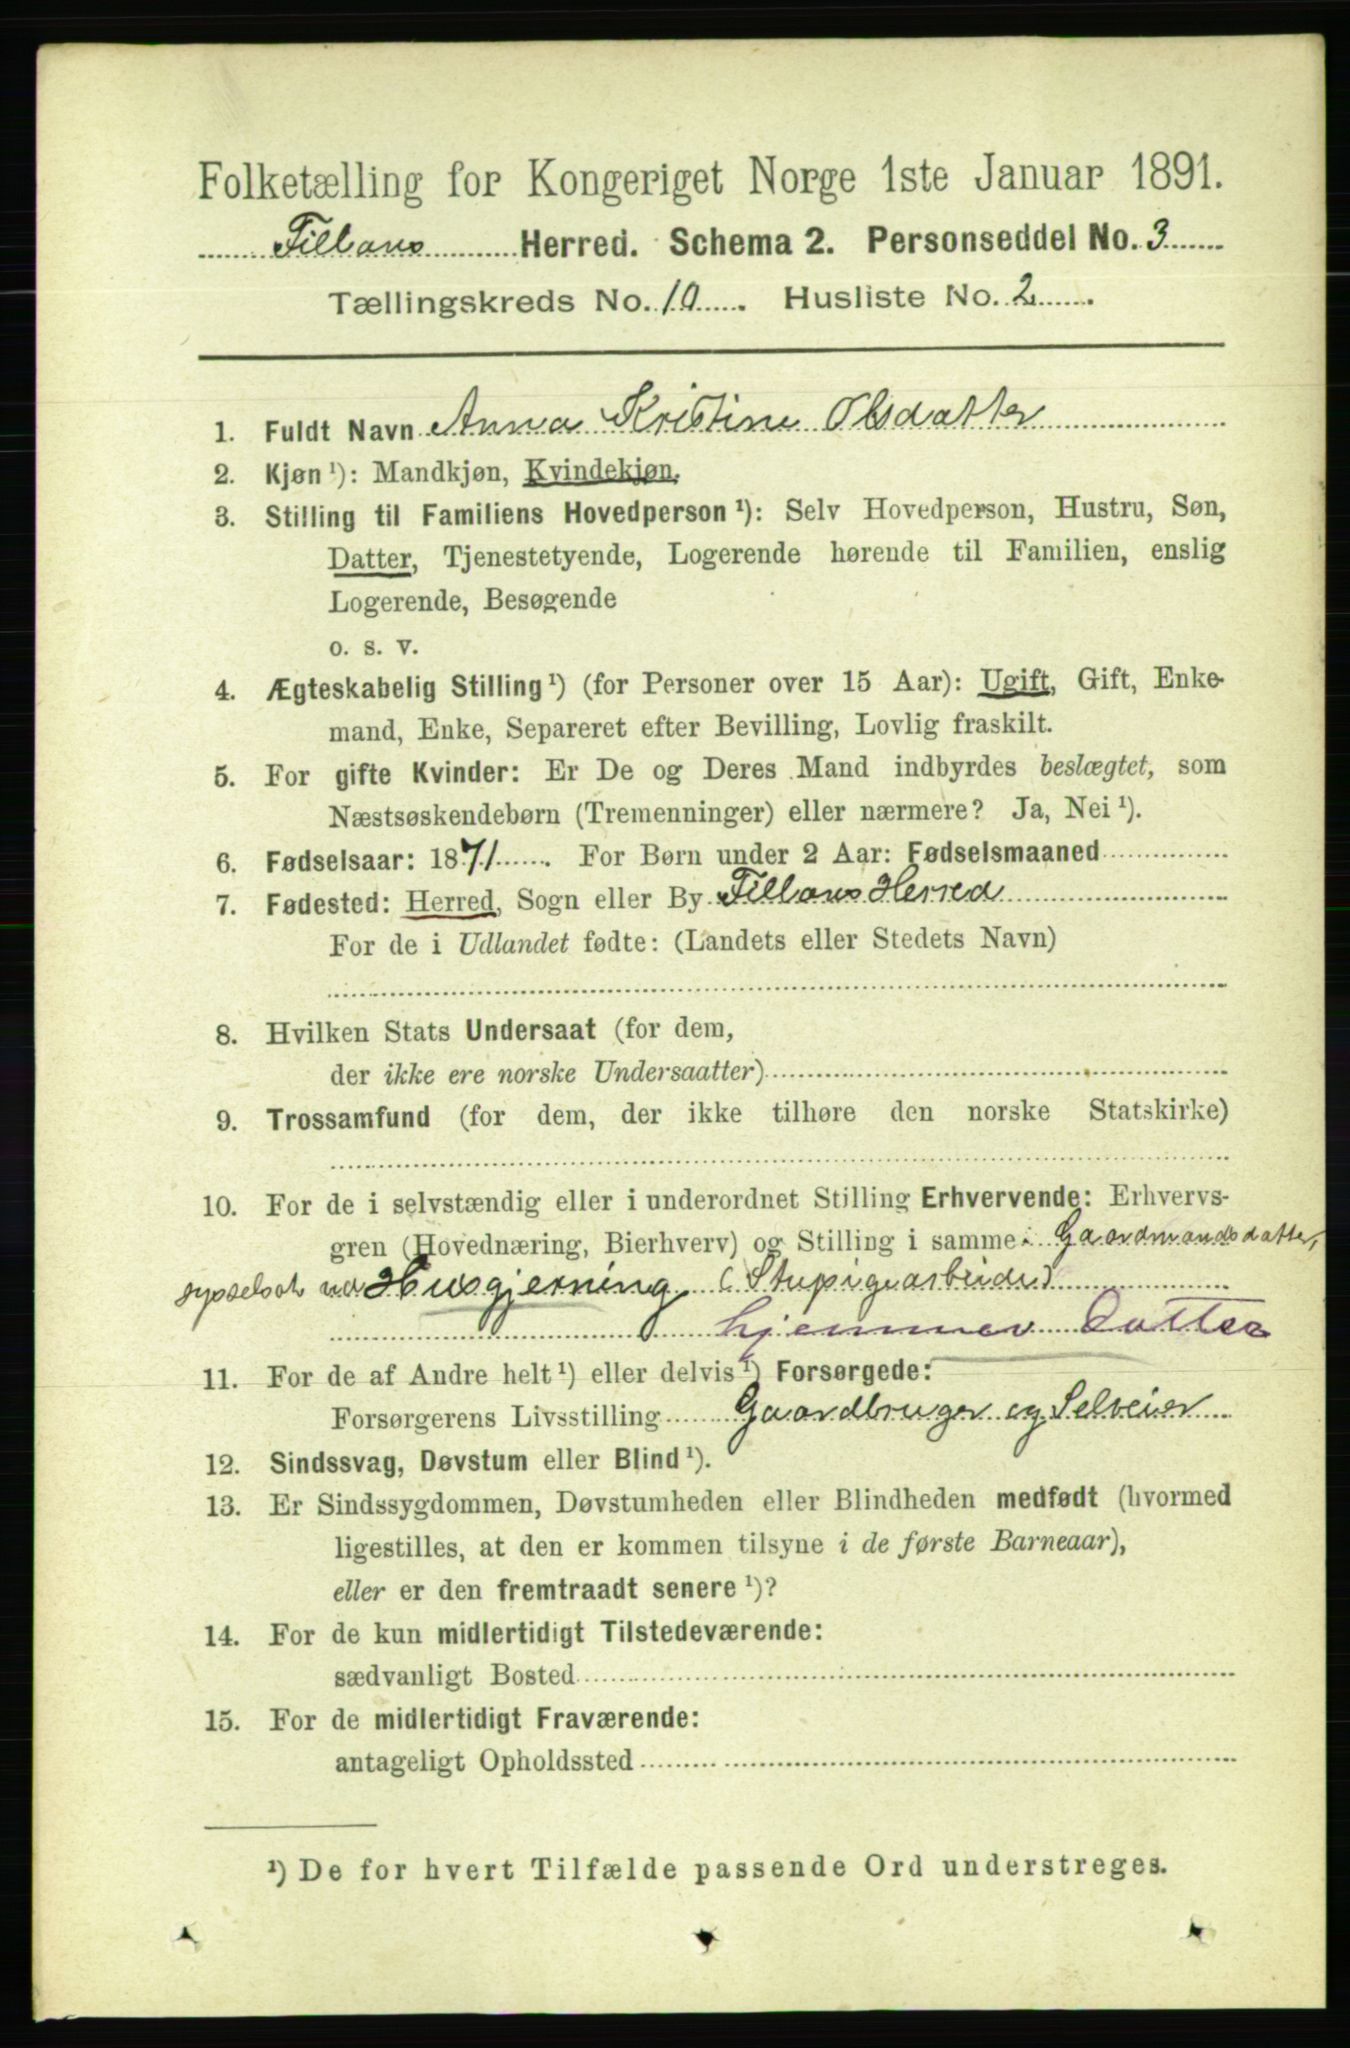 Folketælling for Kongeriget Norge 1ste Januar 1891.
Fillans Herred. Schema 2. Personseddel No. 3
Tællingskreds No. 10. Husliste No. 2.
1. Fuldt Navn Anna Kristine Olsdatter
2. Kjøn ¹): Mandkjøn, Kvindekjøn.
3. Stilling til Familiens Hovedperson ¹): Selv Hovedperson, Hustru, Søn,
Datter, Tjenestetyende, Logerende hørende til Familien, enslig
Logerende, Besøgende
o. s. v.
4. Ægteskabelig Stilling ¹) (for Personer over 15 Aar): Ugift, Gift, Enke-
mand, Enke, Separeret efter Bevilling, Lovlig fraskilt.
5. For gifte Kvinder: Er De og Deres Mand indbyrdes beslægtet, som
Næstsøskendebørn (Tremenninger) eller nærmere? Ja, Nei ¹).
6. Fødselsaar: 1871. For Børn under 2 Aar: Fødselsmaaned
7. Fødested: Herred, Sogn eller By Fillans Herred
For de i Udlandet fødte: (Landets eller Stedets Navn)
8. Hvilken Stats Undersaat (for dem,
der ikke ere norske Undersaatter)
9. Trossamfund (for dem, der ikke tilhøre den norske Statskirke)
10. For de i selvstændig eller i underordnet Stilling Erhvervende: Erhvervs-
gren (Hovednæring, Bierhverv) og Stilling i samme: Gaardmandsdatter,
sysselsat ved Husgjerning (Stupigearbeide)
hjemmev. Datter
11. For de af Andre helt ¹) eller delvis ¹) Forsørgede:
Forsørgerens Livsstilling Gaardbruger og Selveier
12. Sindssvag, Døvstum eller Blind ¹).
13. Er Sindssygdommen, Døvstumheden eller Blindheden medfødt (hvormed
ligestilles, at den er kommen tilsyne i de første Barneaar),
eller er den fremtraadt senere ¹)?
14. For de kun midlertidigt Tilstedeværende:
sædvanligt Bosted
15. For de midlertidigt Fraværende:
antageligt Opholdssted
¹) De for hvert Tilfælde passende Ord understreges.